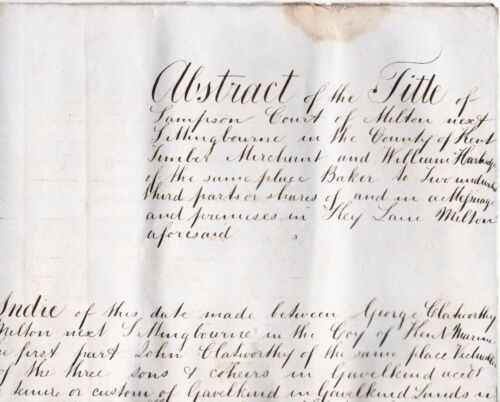 Abstract of the Title of
Sampson Court of Milton next
Sittingbourne in the County of Kent
Timber Merchant and William
of the same place Baker to Two undivi
third parts or shares of and in a Meſsuage
and premises in Hey Lane Milton
aforesaid
Indre of this date made between George Clatworthy
Milton next Sittingbourne in the Coy of Kent Marine
he first part John Clatworthy of the same place
of the three sons & coheirs in Gavelkind accos
e tenure or custom of Gavelkind in Gavelkind Lands in